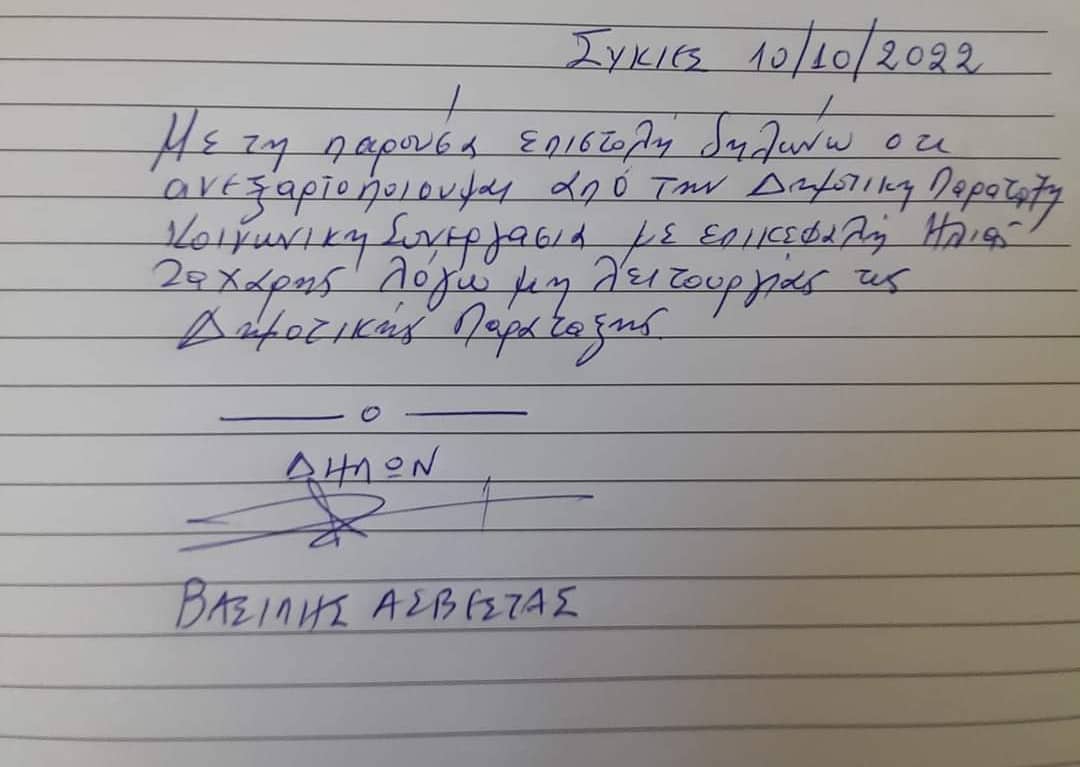 ΣΥΚΙΕΣ 10/10/2022
Με τη παρουσα επιστολή δηλωνω οτι
ανεξαρτοποιουμαι από την Δημοτικη Παραταξη
Κοινωνικη Συνεργασια με επικεφαλή Ηλιας
Ζαχαρης λόγω μη λειτουργιάς της
Δημοτικής Παράταξης.
— ο —
ΔΗΛΩΝ
ΒΑΣΙΛΗΣ ΑΣΒΕΣΤΑΣ